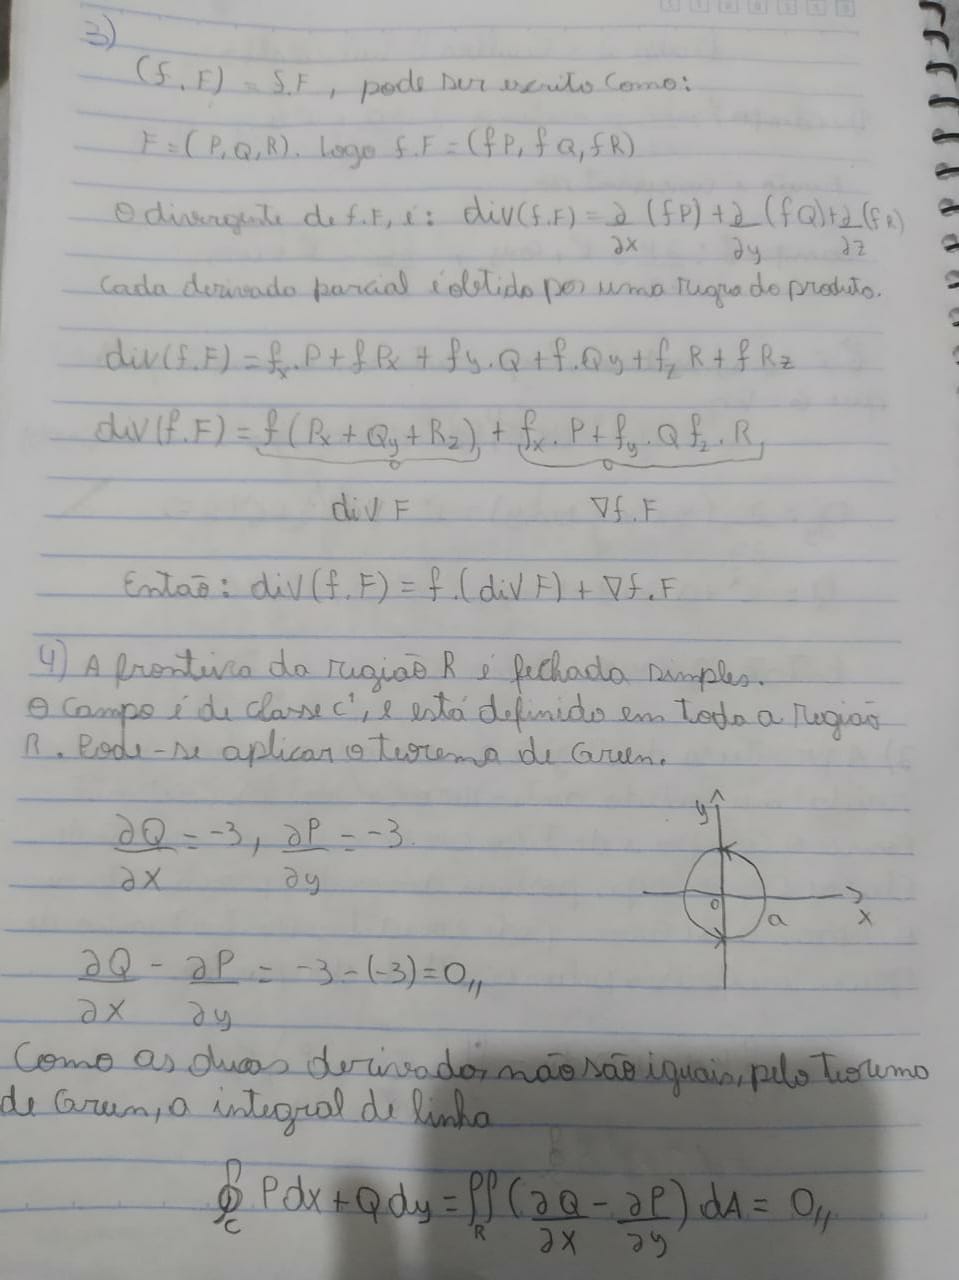 3)
(f.F) = f.F, pode ser escrito como:
F = (P,Q,R). Logo f.F = (fP, fQ, fR)
O divergente de f.F, é: div(f.F) = ∂/∂x (fP) + ∂/∂y (fQ) + ∂/∂z (fR)
Cada derivada parcial é obtida por uma regra do produto.
div(f.F) = fx.P + fPx + fy.Q + f.Qy + fz R + fRz
div(f.F) = f(Px + Qy + Rz) + fx.P + fy.Q fz.R
div F ∇f.F
Então: div(f.F) = f.(div F) + ∇f.F
4) A fronteira da região R é fechada simples.
O campo é de classe C¹, e está definido em toda a região
R. Pode-se aplicar o teorema de Green.
y
∂Q/∂x = -3, ∂P/∂y = -3.
0 a x
∂Q/∂x - ∂P/∂y = -3-(-3) = 0,,
Como as duas derivadas não são iguais, pelo teorema
de Green, a integral de linha
∮C Pdx + Qdy = ∬R (∂Q/∂x - ∂P/∂y) dA = 0,,